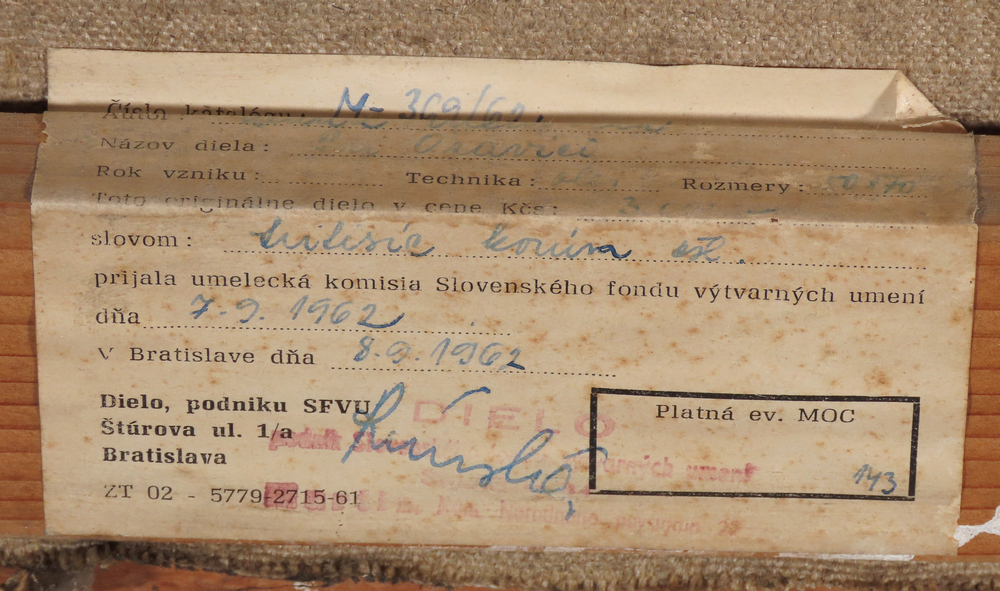 Číslo katalógu: M-369/62
Názov diela: Pri Oravici
Rok vzniku: Technika: Rozmery: 50x70
Toto originálne dielo v cene Kčs:
slovom: korún čsl.
prijala umelecká komisia Slovenského fondu výtvarných umení
dňa 7.9.1962
V Bratislave dňa 8.9.1962
Dielo, podniku SFVU
Štúrova ul. 1/a
Bratislava
ZT 02 - 5779-2715-61
DIELO
podnik výtvarných umení
Platná ev. MOC
143